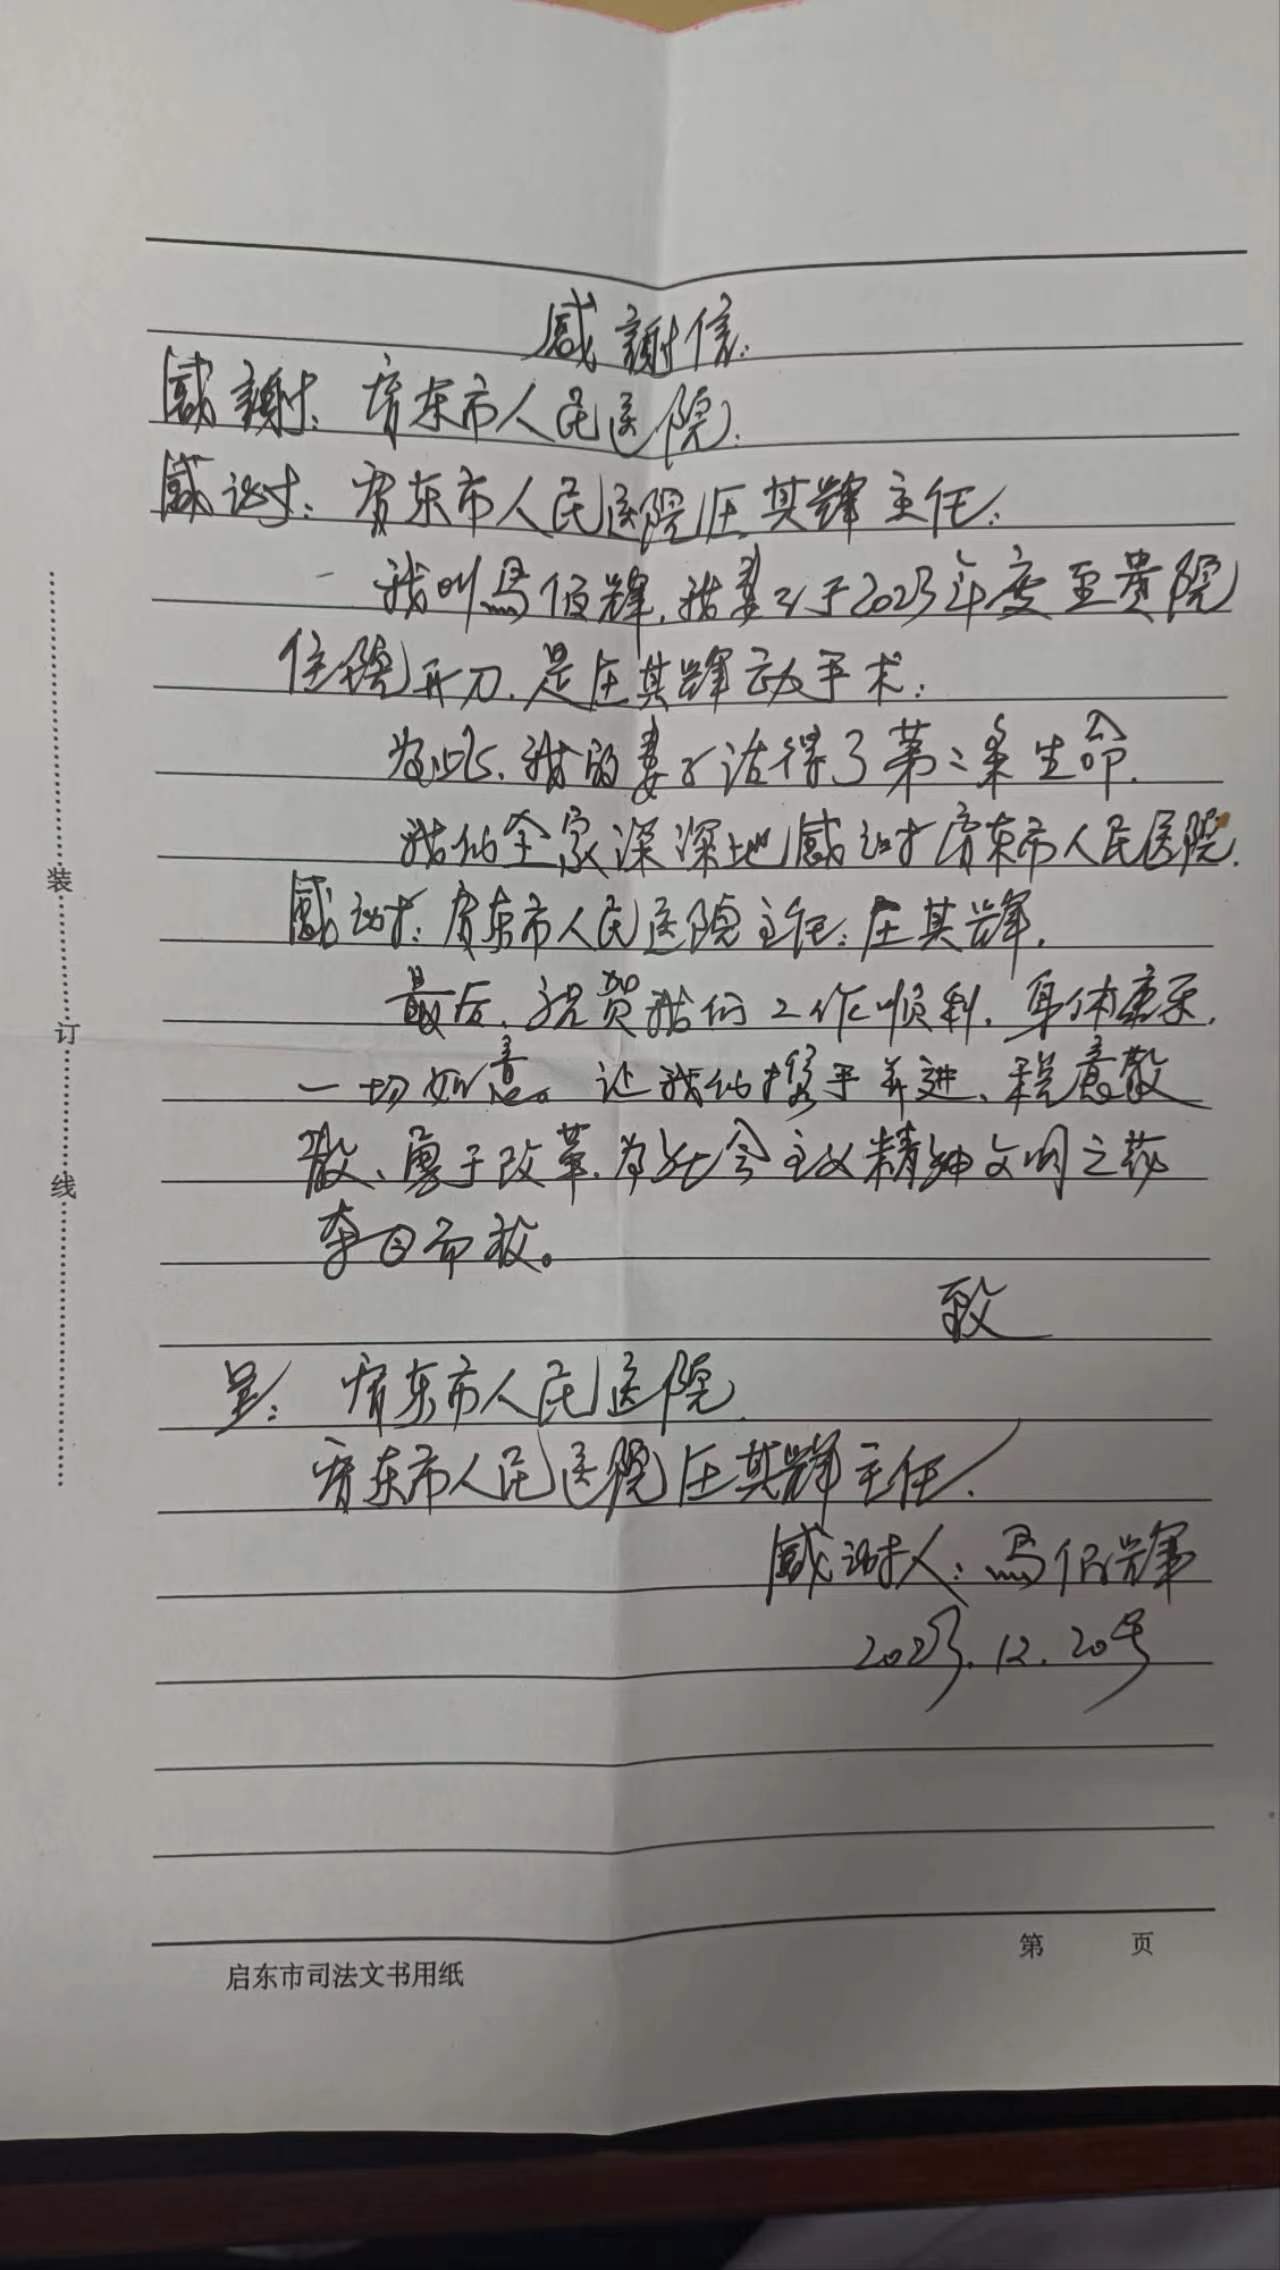 感謝信:
感謝: 启东市人民医院.
感谢: 启东市人民医院庄其辉主任:
我叫馬伯辉,我妻子于2023年度至贵院
住院开刀.是庄其辉动手术:
为此,我的妻子活得了第二条生命.
我们全家深深地感谢启东市人民医院.
感谢:启东市人民医院主任:庄其辉.
最后,祝贺我们工作順利,身体康乐,
一切如意。让我们携手并进、锐意
勇于改革,为社会主义精神文明之花
而放。
致
呈: 启东市人民医院.
启东市人民医院庄其辉主任.
感谢人:馬伯辉
2023.12.20号
装
订
线
启东市司法文书用纸
第 页